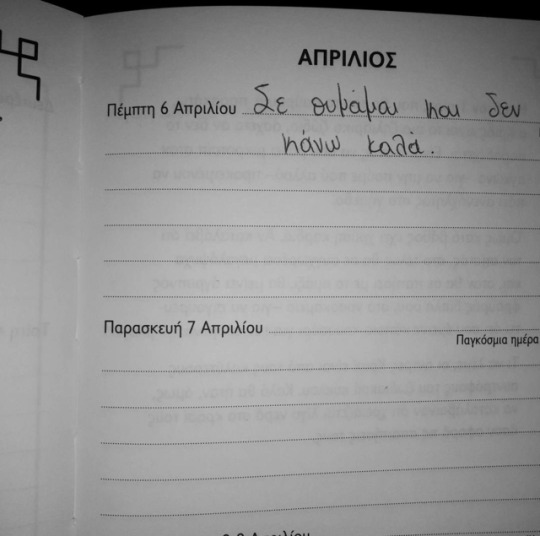 ΑΠΡΙΛΙΟΣ
Πέμπτη 6 Απριλίου Σε θυμάμαι και δεν
κάνω καλά.
Παρασκευή 7 Απριλίου
Παγκόσμια ημέρα